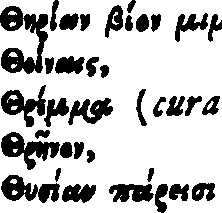 Θηρίαν βίον μιμ
Θοίναις,
Θρίμμα (cura
Θρῆνον,
Θυσίαν πάρεισι